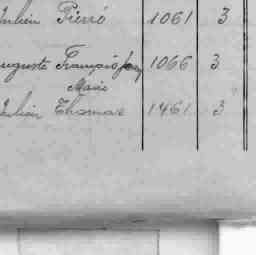 Julien Pierró 1061 3
Auguste François 1066 3
Marie
Julien Thomas 1461 3